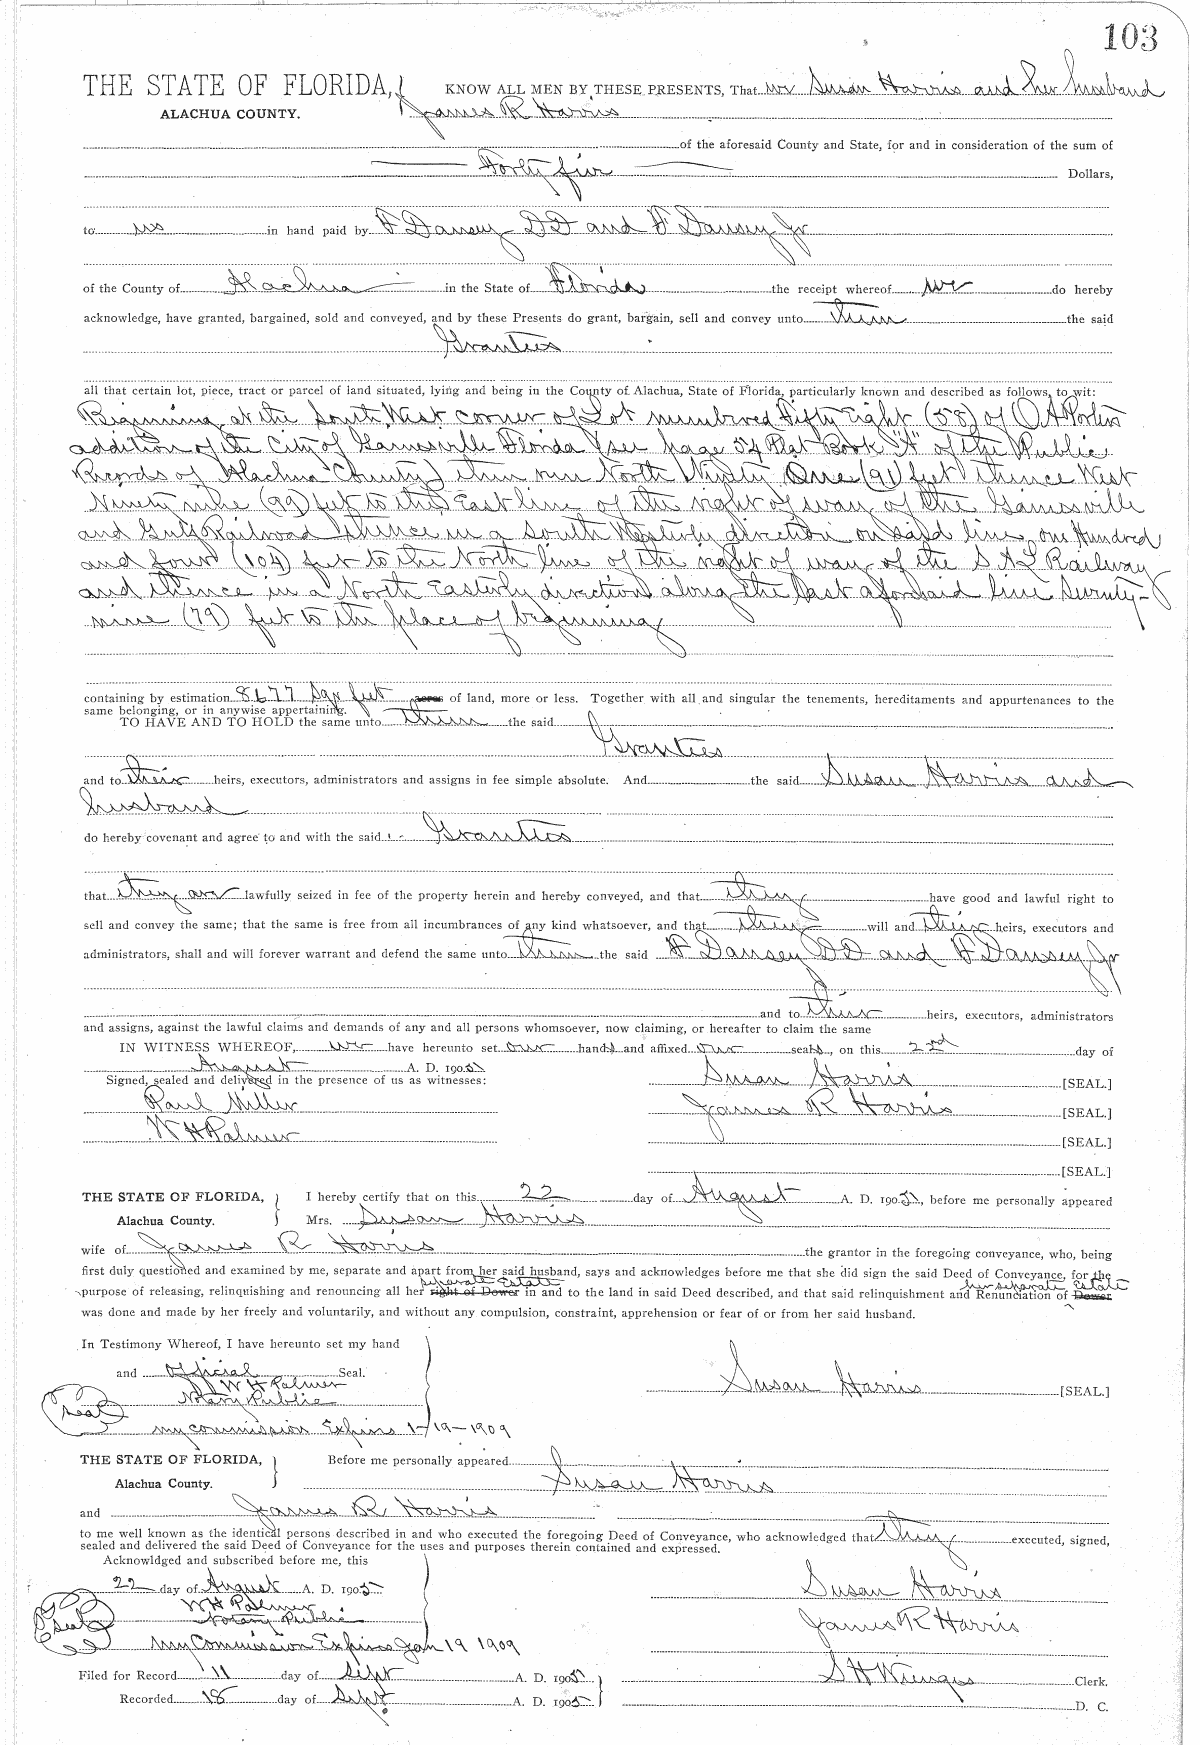 103
THE STATE OF FLORIDA, KNOW ALL MEN BY THESE PRESENTS, That we Susan Harris and her husband
ALACHUA COUNTY. James R Harris
of the aforesaid County and State, for and in consideration of the sum of
Forty five Dollars,
to us in hand paid by F Dansey DD and F Dansey Jr
of the County of Alachua in the State of Florida the receipt whereof we do hereby
acknowledge, have granted, bargained, sold and conveyed, and by these Presents do grant, bargain, sell and convey unto them the said
Grantees
all that certain lot, piece, tract or parcel of land situated, lying and being in the County of Alachua, State of Florida, particularly known and described as follows, to wit:
Beginning at the South West corner of Lot numbered Fifty Eight (58) of O A Porters
addition of the City of Gainesville Florida (see page 54 Plat Book "A" of the Public
Records of Alachua County) then run North Ninety One (91) feet thence West
Ninety nine (99) feet to the East line of the right of way of the Gainesville
and Gulf Railroad thence in a South Westerly direction on said line one Hundred
and four (104) feet to the North line of the right of way of the S A L Railway
and thence in a North Easterly direction along the last aforesaid line Seventy-
nine (79) feet to the place of beginning
containing by estimation 8677 Sqr feet acres of land, more or less. Together with all and singular the tenements, hereditaments and appurtenances to the
same belonging, or in anywise appertaining.
TO HAVE AND TO HOLD the same unto them the said
Grantees
and to their heirs, executors, administrators and assigns in fee simple absolute. And the said Susan Harris and
husband
do hereby covenant and agree to and with the said Grantees
that they are lawfully seized in fee of the property herein and hereby conveyed, and that they have good and lawful right to
sell and convey the same; that the same is free from all incumbrances of any kind whatsoever, and that they will and their heirs, executors and
administrators, shall and will forever warrant and defend the same unto them the said F Dansey DD and F Dansey Jr
and to their heirs, executors, administrators
and assigns, against the lawful claims and demands of any and all persons whomsoever, now claiming, or hereafter to claim the same
IN WITNESS WHEREOF, we have hereunto set our hands and affixed our seals, on this 22nd day of
August A. D. 1905
Signed, sealed and delivered in the presence of us as witnesses: Susan Harris [SEAL.]
Paul Miller James R Harris [SEAL.]
W H Palmer [SEAL.]
[SEAL.]
THE STATE OF FLORIDA, I hereby certify that on this 22 day of August A. D. 1905, before me personally appeared
Alachua County. Mrs. Susan Harris
wife of James R Harris the grantor in the foregoing conveyance, who, being
first duly questioned and examined by me, separate and apart from her said husband, says and acknowledges before me that she did sign the said Deed of Conveyance, for the
separate Estate her separate Estate
purpose of releasing, relinquishing and renouncing all her right of Dower in and to the land in said Deed described, and that said relinquishment and Renunciation of Dower
was done and made by her freely and voluntarily, and without any compulsion, constraint, apprehension or fear of or from her said husband.
In Testimony Whereof, I have hereunto set my hand
and official Seal.
W H Palmer Susan Harris [SEAL.]
Seal Notary Public
my commission Expires 1-19-1909
THE STATE OF FLORIDA, Before me personally appeared
Alachua County. Susan Harris
and James R Harris
to me well known as the identical persons described in and who executed the foregoing Deed of Conveyance, who acknowledged that they executed, signed,
sealed and delivered the said Deed of Conveyance for the uses and purposes therein contained and expressed.
Acknowldged and subscribed before me, this
22 day of August A. D. 1905 Susan Harris
W H Palmer
Seal Notary Public James R Harris
My Commission Expires Jan 19 1909
Filed for Record 11 day of Sept A. D. 1905 S H Wienges Clerk.
Recorded 18 day of Sept. A. D. 1905 D. C.